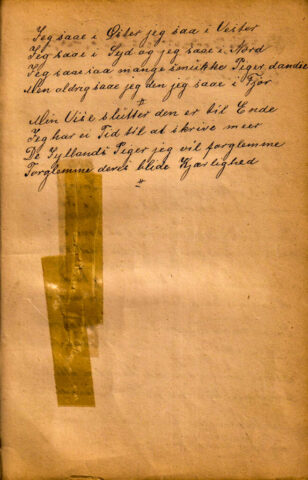 Jeg saae i Øster jeg saa i Vester
Jeg saae i Syd og jeg saae i Nord
Jeg saae saa mange smukke Piger dandse
Men aldrig saae jeg den jeg saae i Fjor
"
Min Vise slutter den er til Ende
Jeg har ei Tid til at skrive meer
De Jyllands Piger jeg vil forglemme
Forglemme deres blide Kjærlighed
"